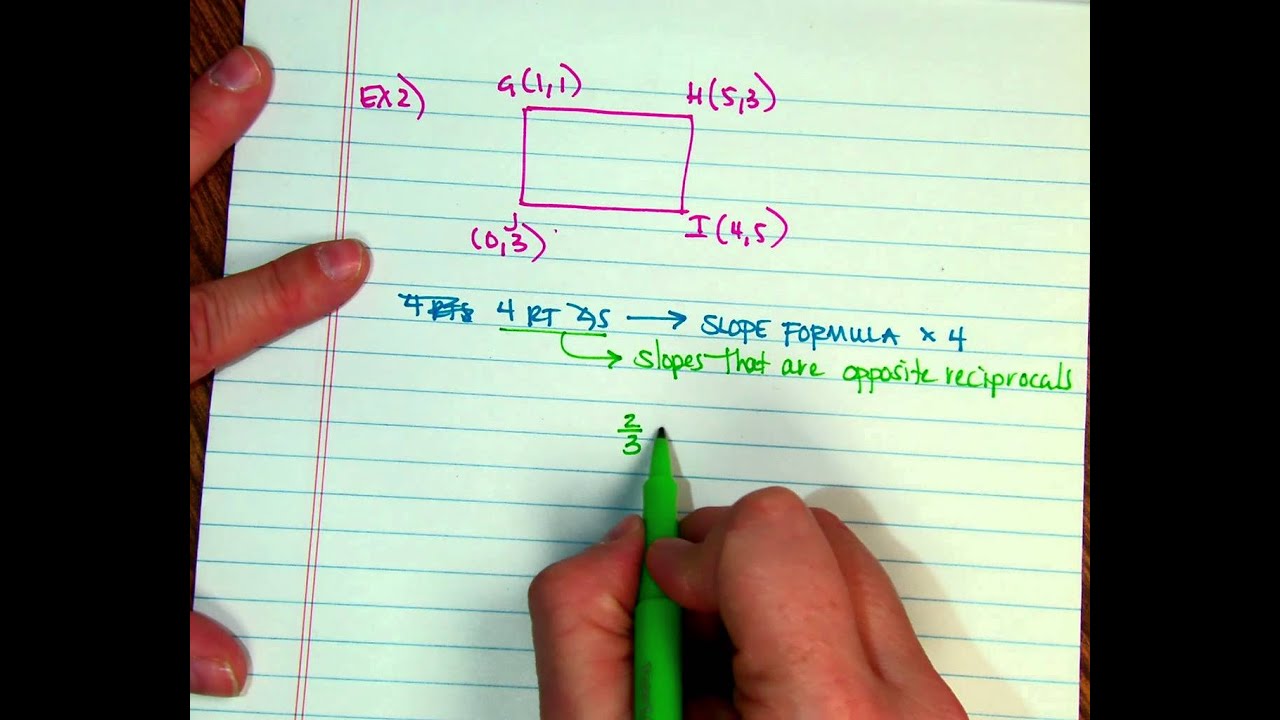 Ex 2)
G(1,1) H(5,3)
J I(4,5)
(0,3)
4 RT ∠s → SLOPE FORMULA × 4
→ slopes that are opposite reciprocals
2
3